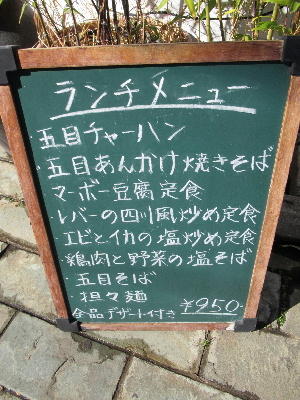 ランチメニュー
五目チャーハン
・五目あんかけ焼きそば
マーボー豆腐定食
・レバーの四川風炒め定食
・エビとイカの塩炒め定食
・鶏肉と野菜の塩そば
・五目そば
・担々麺
全品デザート付き ¥950-